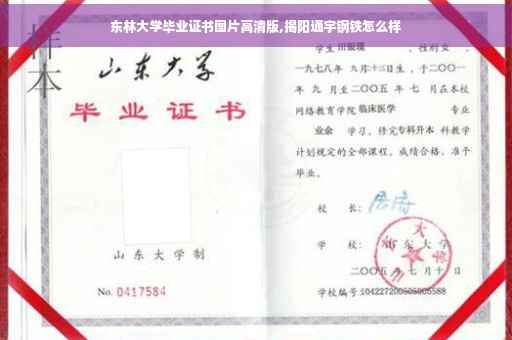 东林大学毕业证书图片高清版,揭阳通宇钢铁怎么样
样本
山东大学
毕业证书
山东大学制
No. 0417584
学生 田银環 ,性别女 ,
一九七八年 九月十三日生,于二〇〇一
年 九 月至二〇〇五 年 七 月在本校
网络教育学院 临床医学 专业
业余 学习,修完专科升本 科教学
计划规定的全部课程,成绩合格,准予
毕业。
校 长:
学 校: 山东大学
二〇〇五 年 七 月 十 日
学校编号:104227200505005588